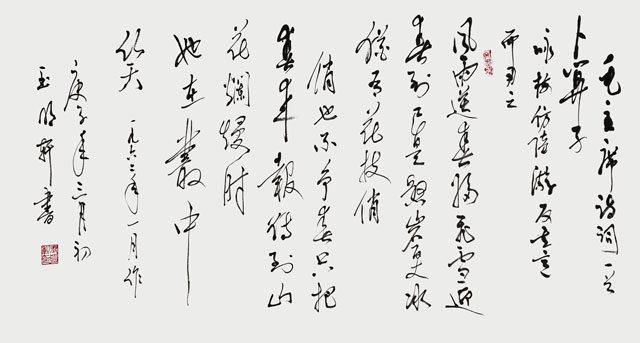 毛主席诗词一首
卜算子
咏梅仿陆游反其意
而用之
风雨送春归飞雪迎
春到已是悬崖百丈冰
犹有花枝俏
俏也不争春只把
春来報待到山
花爛熳时
她在叢中
笑 一九六二年一月作
庚子年三月初
玉明轩書